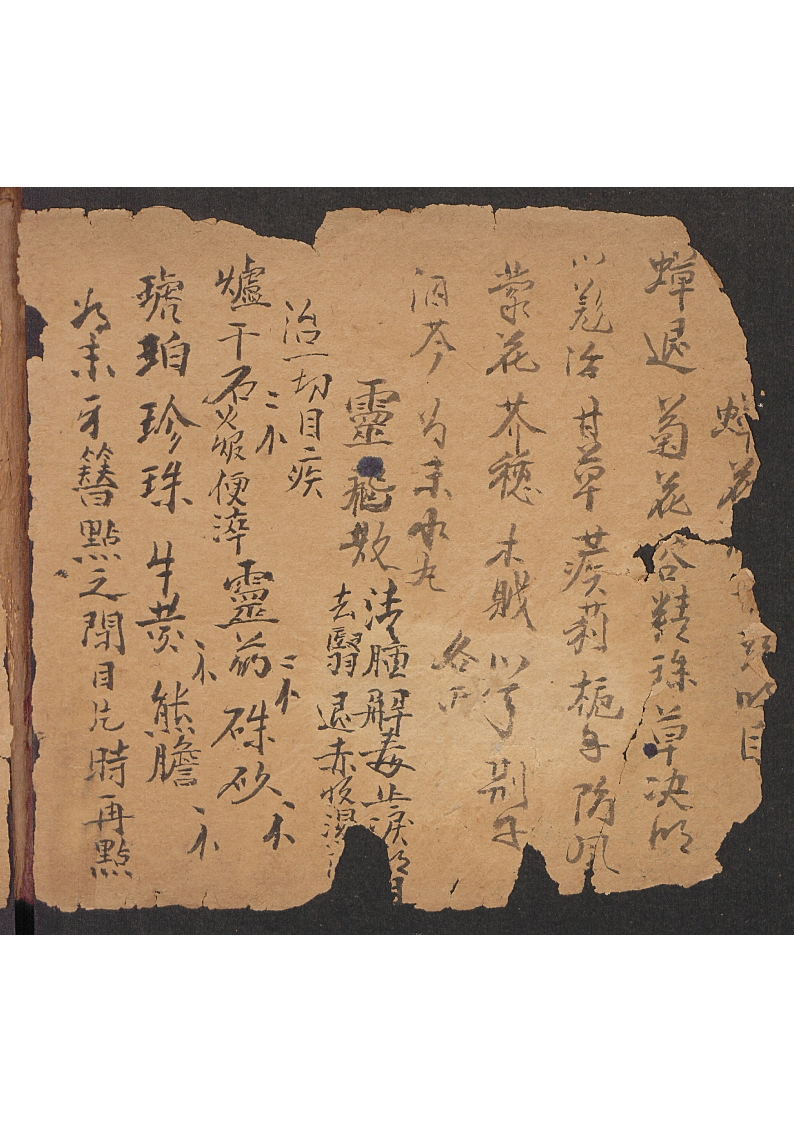 蟬花
明目
蟬退 菊花 谷精珠 草決明
川羗活 甘草 蒺莉 梔子 防風
蒙花 芥穗 木賊 川芎 荆子
各
酒芩 为末 水丸
靈 散
清腫解毒止淚明目
去翳退赤收濕
治一切目疾
爐干石火煅便淬 二 靈药 二 硃砂 一
琥珀 珍珠 牛黄 一 熊膽 一
为末牙簪點之閉目片時再點